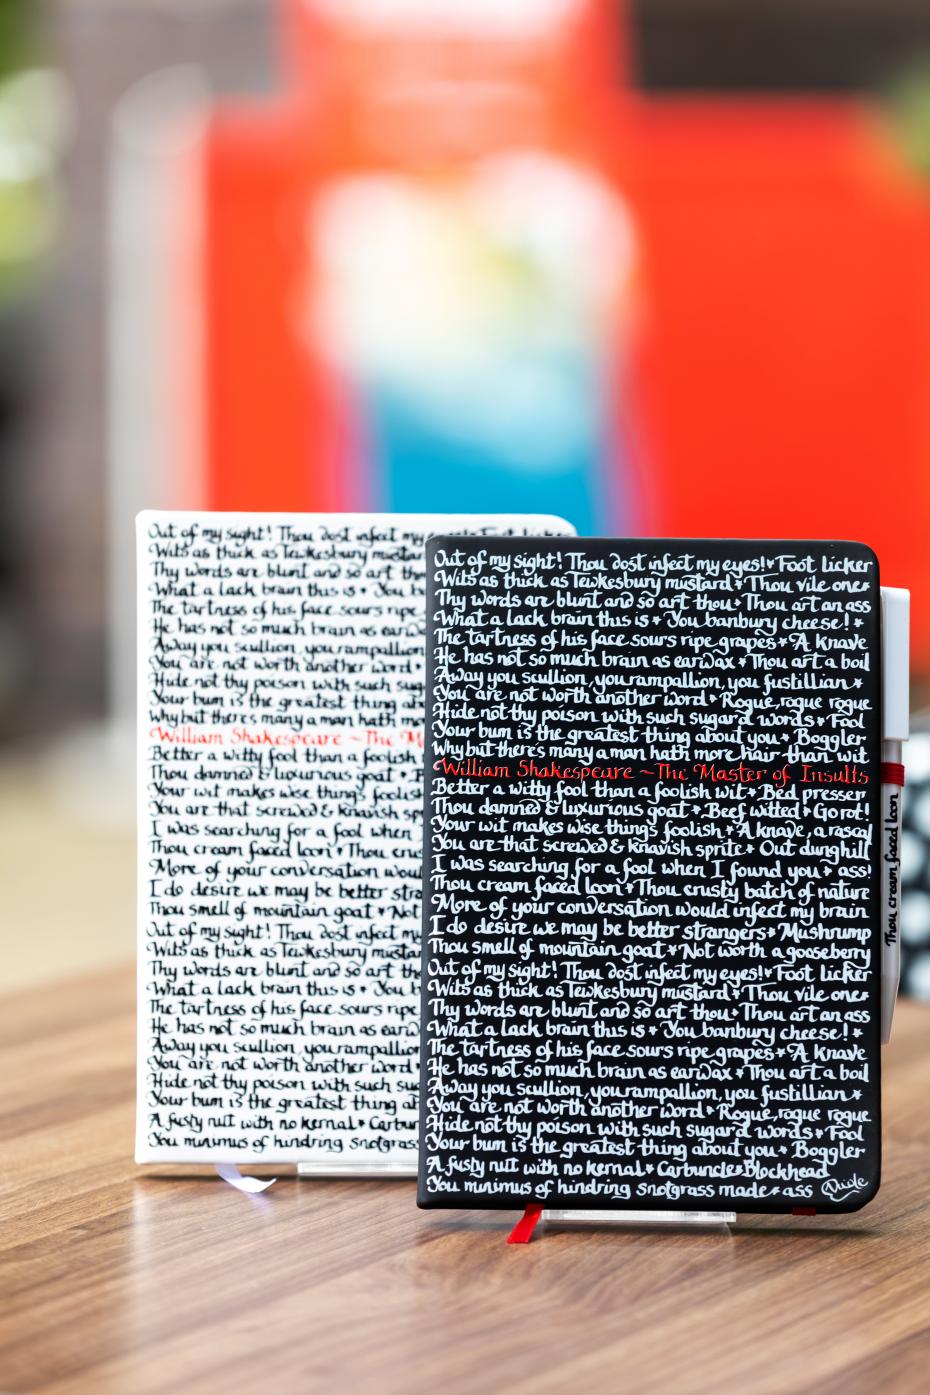 Out of my sight! Thou dost infect my
Wits as thick as Tewkesbury mustar
Thy words are blunt and so art th
What a lack brain this is * You b
The tartness of his face sours ripe
He has not so much brain as earw
Away you scullion, you rampallion
You are not worth another word *
Hide not thy poison with such sug
Your bum is the greatest thing ab
Why but there's many a man hath mo
William Shakespeare ~ The M
Better a witty fool than a foolish
Thou damned & luxurious goat *
Your wit makes wise things foolish
You are that screwed & knavish sp
I was searching for a fool when
Thou cream faced loon * Thou crus
More of your conversation woul
I do desire we may be better stra
Thou smell of mountain goat * Not
Out of my sight! Thou dost infect my
Wits as thick as Tewkesbury mustar
Thy words are blunt and so art th
What a lack brain this is * You b
The tartness of his face sours ripe
He has not so much brain as earw
Away you scullion, you rampallion
You are not worth another word *
Hide not thy poison with such su
Your bum is the greatest thing at
A fusty nut with no kernal * Carbun
You minimus of hindring snotgrass
Out of my sight! Thou dost infect my eyes! * Foot licker
Wits as thick as Tewkesbury mustard * Thou vile one *
Thy words are blunt and so art thou * Thou art an ass
What a lack brain this is * You banbury cheese! *
The tartness of his face sours ripe grapes * A knave
He has not so much brain as earwax * Thou art a boil
Away you scullion, you rampallion, you fustillian *
You are not worth another word * Rogue, rogue rogue
Hide not thy poison with such sugard words * Fool
Your bum is the greatest thing about you * Boggler
Why but there's many a man hath more hair than wit
William Shakespeare ~ The Master of Insults
Better a witty fool than a foolish wit * Bed presser
Thou damned & luxurious goat * Beef witted * Go rot!
Your wit makes wise things foolish * A knave, a rascal
You are that screwed & knavish sprite * Out dunghill
I was searching for a fool when I found you * ass!
Thou cream faced loon * Thou crusty batch of nature
More of your conversation would infect my brain
I do desire we may be better strangers * Mushrump
Thou smell of mountain goat * Not worth a gooseberry
Out of my sight! Thou dost infect my eyes! * Foot licker
Wits as thick as Tewkesbury mustard * Thou vile one *
Thy words are blunt and so art thou * Thou art an ass
What a lack brain this is * You banbury cheese! *
The tartness of his face sours ripe grapes * A knave
He has not so much brain as earwax * Thou art a boil
Away you scullion, you rampallion, you fustillian *
You are not worth another word * Rogue, rogue rogue
Hide not thy poison with such sugard words * Fool
Your bum is the greatest thing about you * Boggler
A fusty nut with no kernal * Carbuncle * Blockhead
You minimus of hindring snotgrass made * ass
Thou cream faced loon